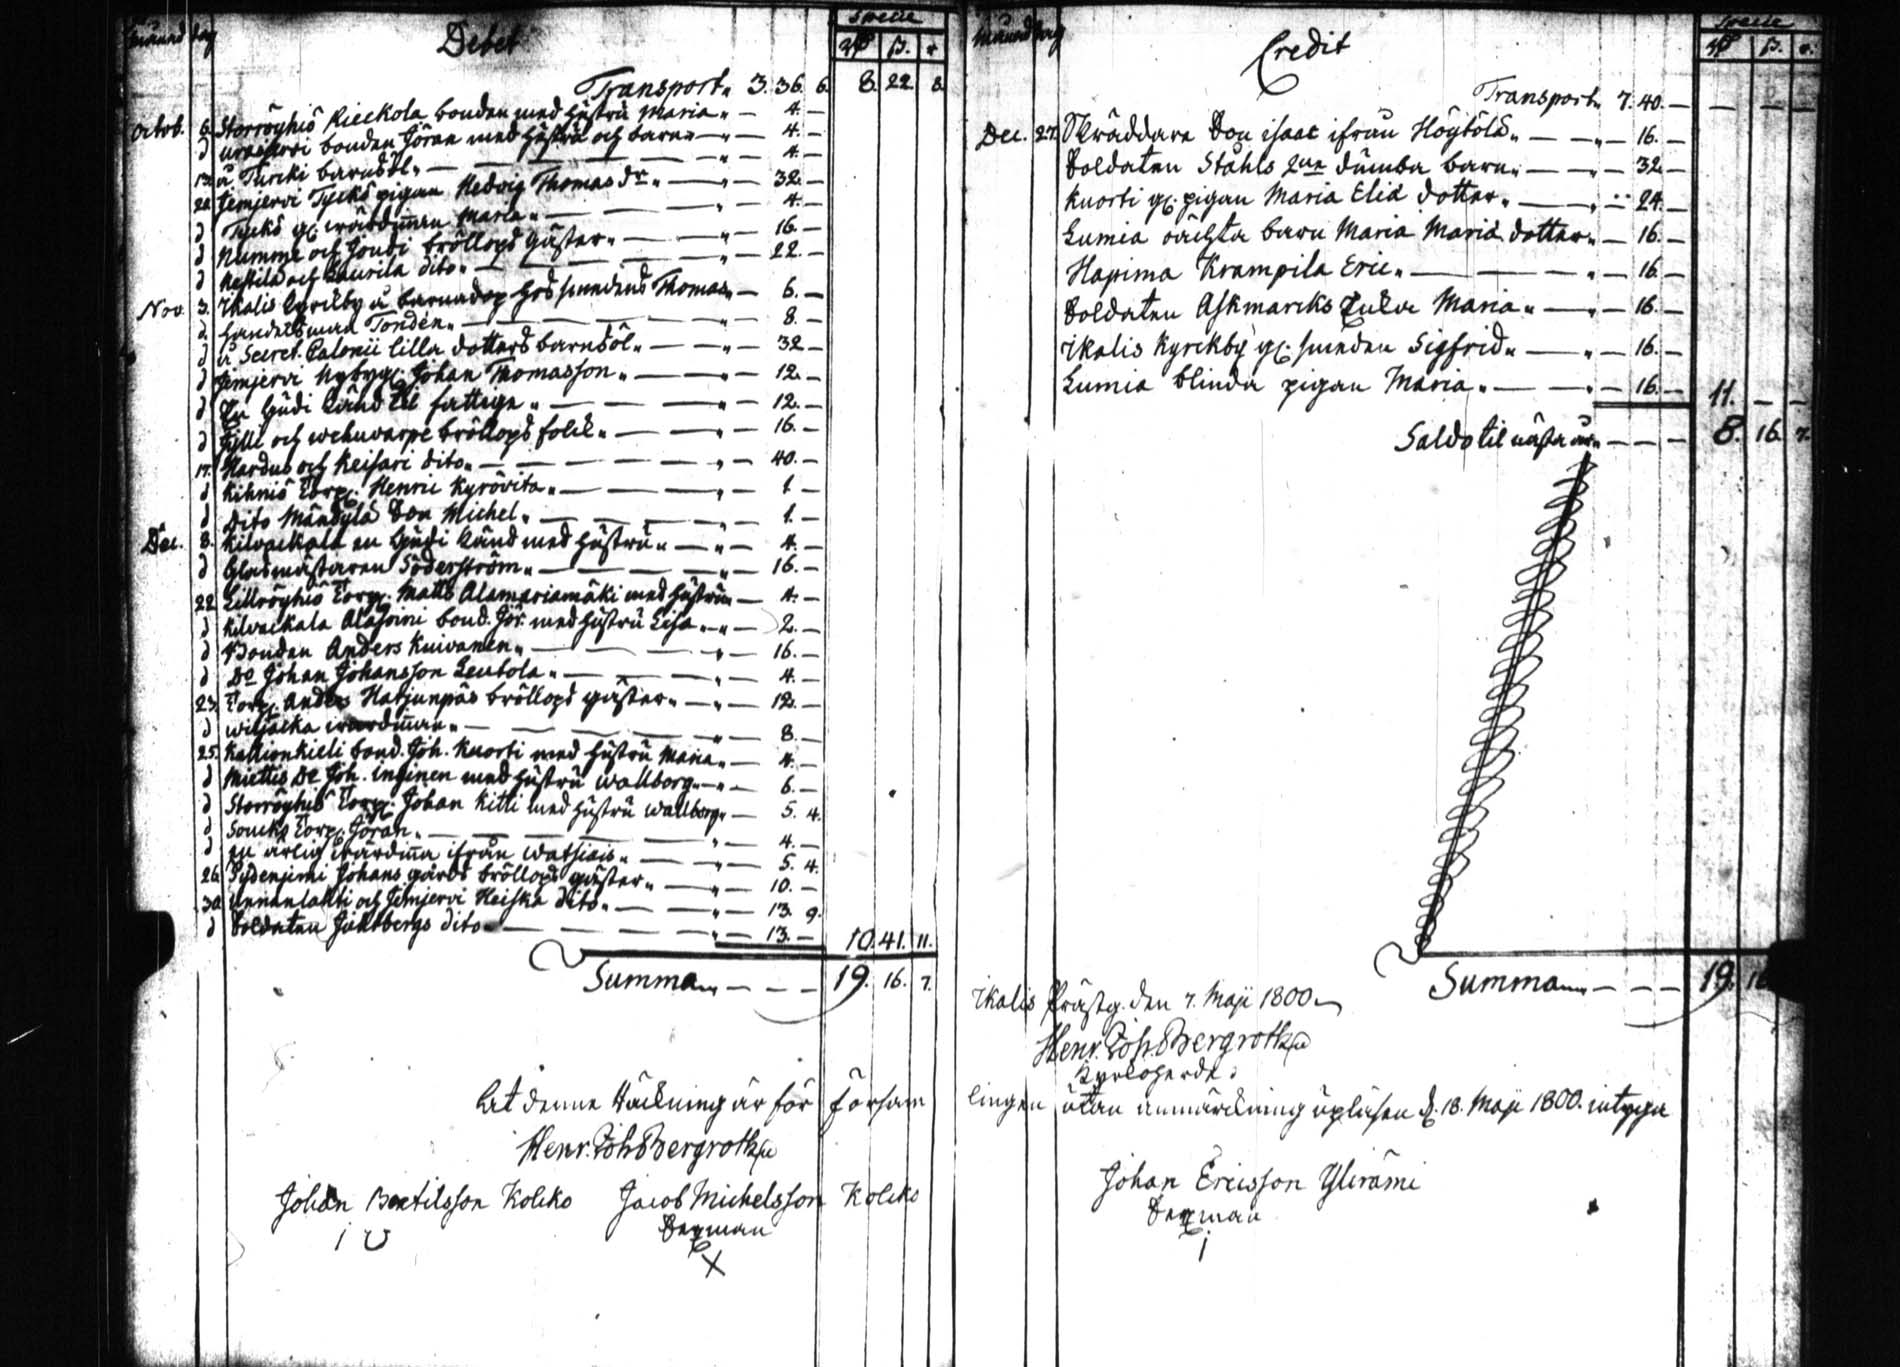 Månad dag Debet Specie
Rd ß. r.
Transport„ 3. 36. 6. 8. 22. 8.
Octob. 6. Storröyhiö Rieckola bonden med hustru Maria„ — 4. —
d bonden Jöran med hustru och barn„ — „ — 4. —
13. å Turcki barnsöl„ — „ — 4. —
20. Jemjervi Tycks pigan Hedvig Thomas dr. „ — „ — 32. —
d Tycks gl. Maria „ — „ — 4. —
d Numme och Joudi bröllops gäster„ — „ — 16. —
d Kestilä och Laurila dito„ — „ — 22. —
Nov. 3. Ikalis Kyrckby å barnadop hos smedens Thomas„ — 6. —
d. Handelsman Tondén„ — „ — 8. —
d å Secret. Calonii lilla dotters barnsöl„ — „ — 32 —
d Jemjervi Nybygg. Johan Thomasson„ — „ — 12. —
d En til fattige „ — „ — 12. —
d Jylli och wehuvarpe bröllops folck„ — „ — 16. —
17. Mardus och Keisari dito„ — „ — 40. —
d Kihniö Torp. Henric Kyrövita„ — „ — 1. —
d Dito Mändylä Son Michel„ — „ — 1. —
Dec. 8. Kilvackala en känd med hustru„ — „ — 4. —
d Glasmästaren Söderström„ — „ — 16. —
22. Lillröyhiö Torp. Matts Alamariamäki med hustru„ — 4. —
d Kilvackala Alasoini bond. Jör. med hustru Lisa„ — „ — 2. —
d Bonden Anders Kuivanen„ — „ — 16. —
d Do Johan Johansson Leutola„ — „ — 4. —
23. Torp. Anders Hatjunpäs bröllops gäster„ — „ — 12. —
d wiljacka „ — „ — 8. —
25. Kallionkieli bond. Joh. Kuorti med hustru Maria„ — 4. —
d Miettis Do Joh. Inginen med hustru Wallborg„ — 6. —
d Storröyhiö Torp. Johan Kitti med hustru Wallborg„ — 5. 4.
d Soucks Torp. Jöran„ — „ — 4. —
d en ärlig ifrån „ — „ — 5. 4.
26. Sydenjemi Johans gårds bröllops gäster„ — „ — 10. —
30. Unnanlahti och Jemjervi Heiska dito„ — „ — 13. 9.
d Soldaten dito„ — „ — 13. — 10. 41. 11.
Summa„ — — — 19. 16. 7.
Månad dag Credit Specie
Rd ß. r.
Transport„ 7. 40. — — — —
Dec. 27. Skräddare Son isaac ifrån Höytölä„ — „ — 16. —
Soldaten Ståhls 2ne dumba barn„ — „ — 32. —
Kuorti gl. pigan Maria Eliæ dotter„ — „ — 24. —
Lumia barn Maria Mariæ dotter„ — 16. —
Hapima Krampila Eric„ — „ — 16. —
Soldaten Askmarcks Enka Maria „ — „ — 16. —
Ikalis Kyrckby gl. smeden Sigfrid„ — „ — 16. —
Lumia blinda pigan Maria„ — „ — 16. — 11. — —
Saldo til nästa år„ — — — 8. 16. 7.
Summa„ — — — 19. 16
Ikalis Prästg. den 7. Maji 1800.
Henr. Joh. Bergroth
Kyrckoherde.
At denne Räckning är för Församlingen utan anmärckning upläsen d. 18. Maji 1800. intyga
Henr. Joh. Bergroth
Johan Bertilsson Kolcko Jacob Michelsson Kolcko
Sexman
X
Johan Ericsson Ylirämi
Sexman